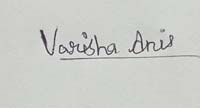 Varisha Anis